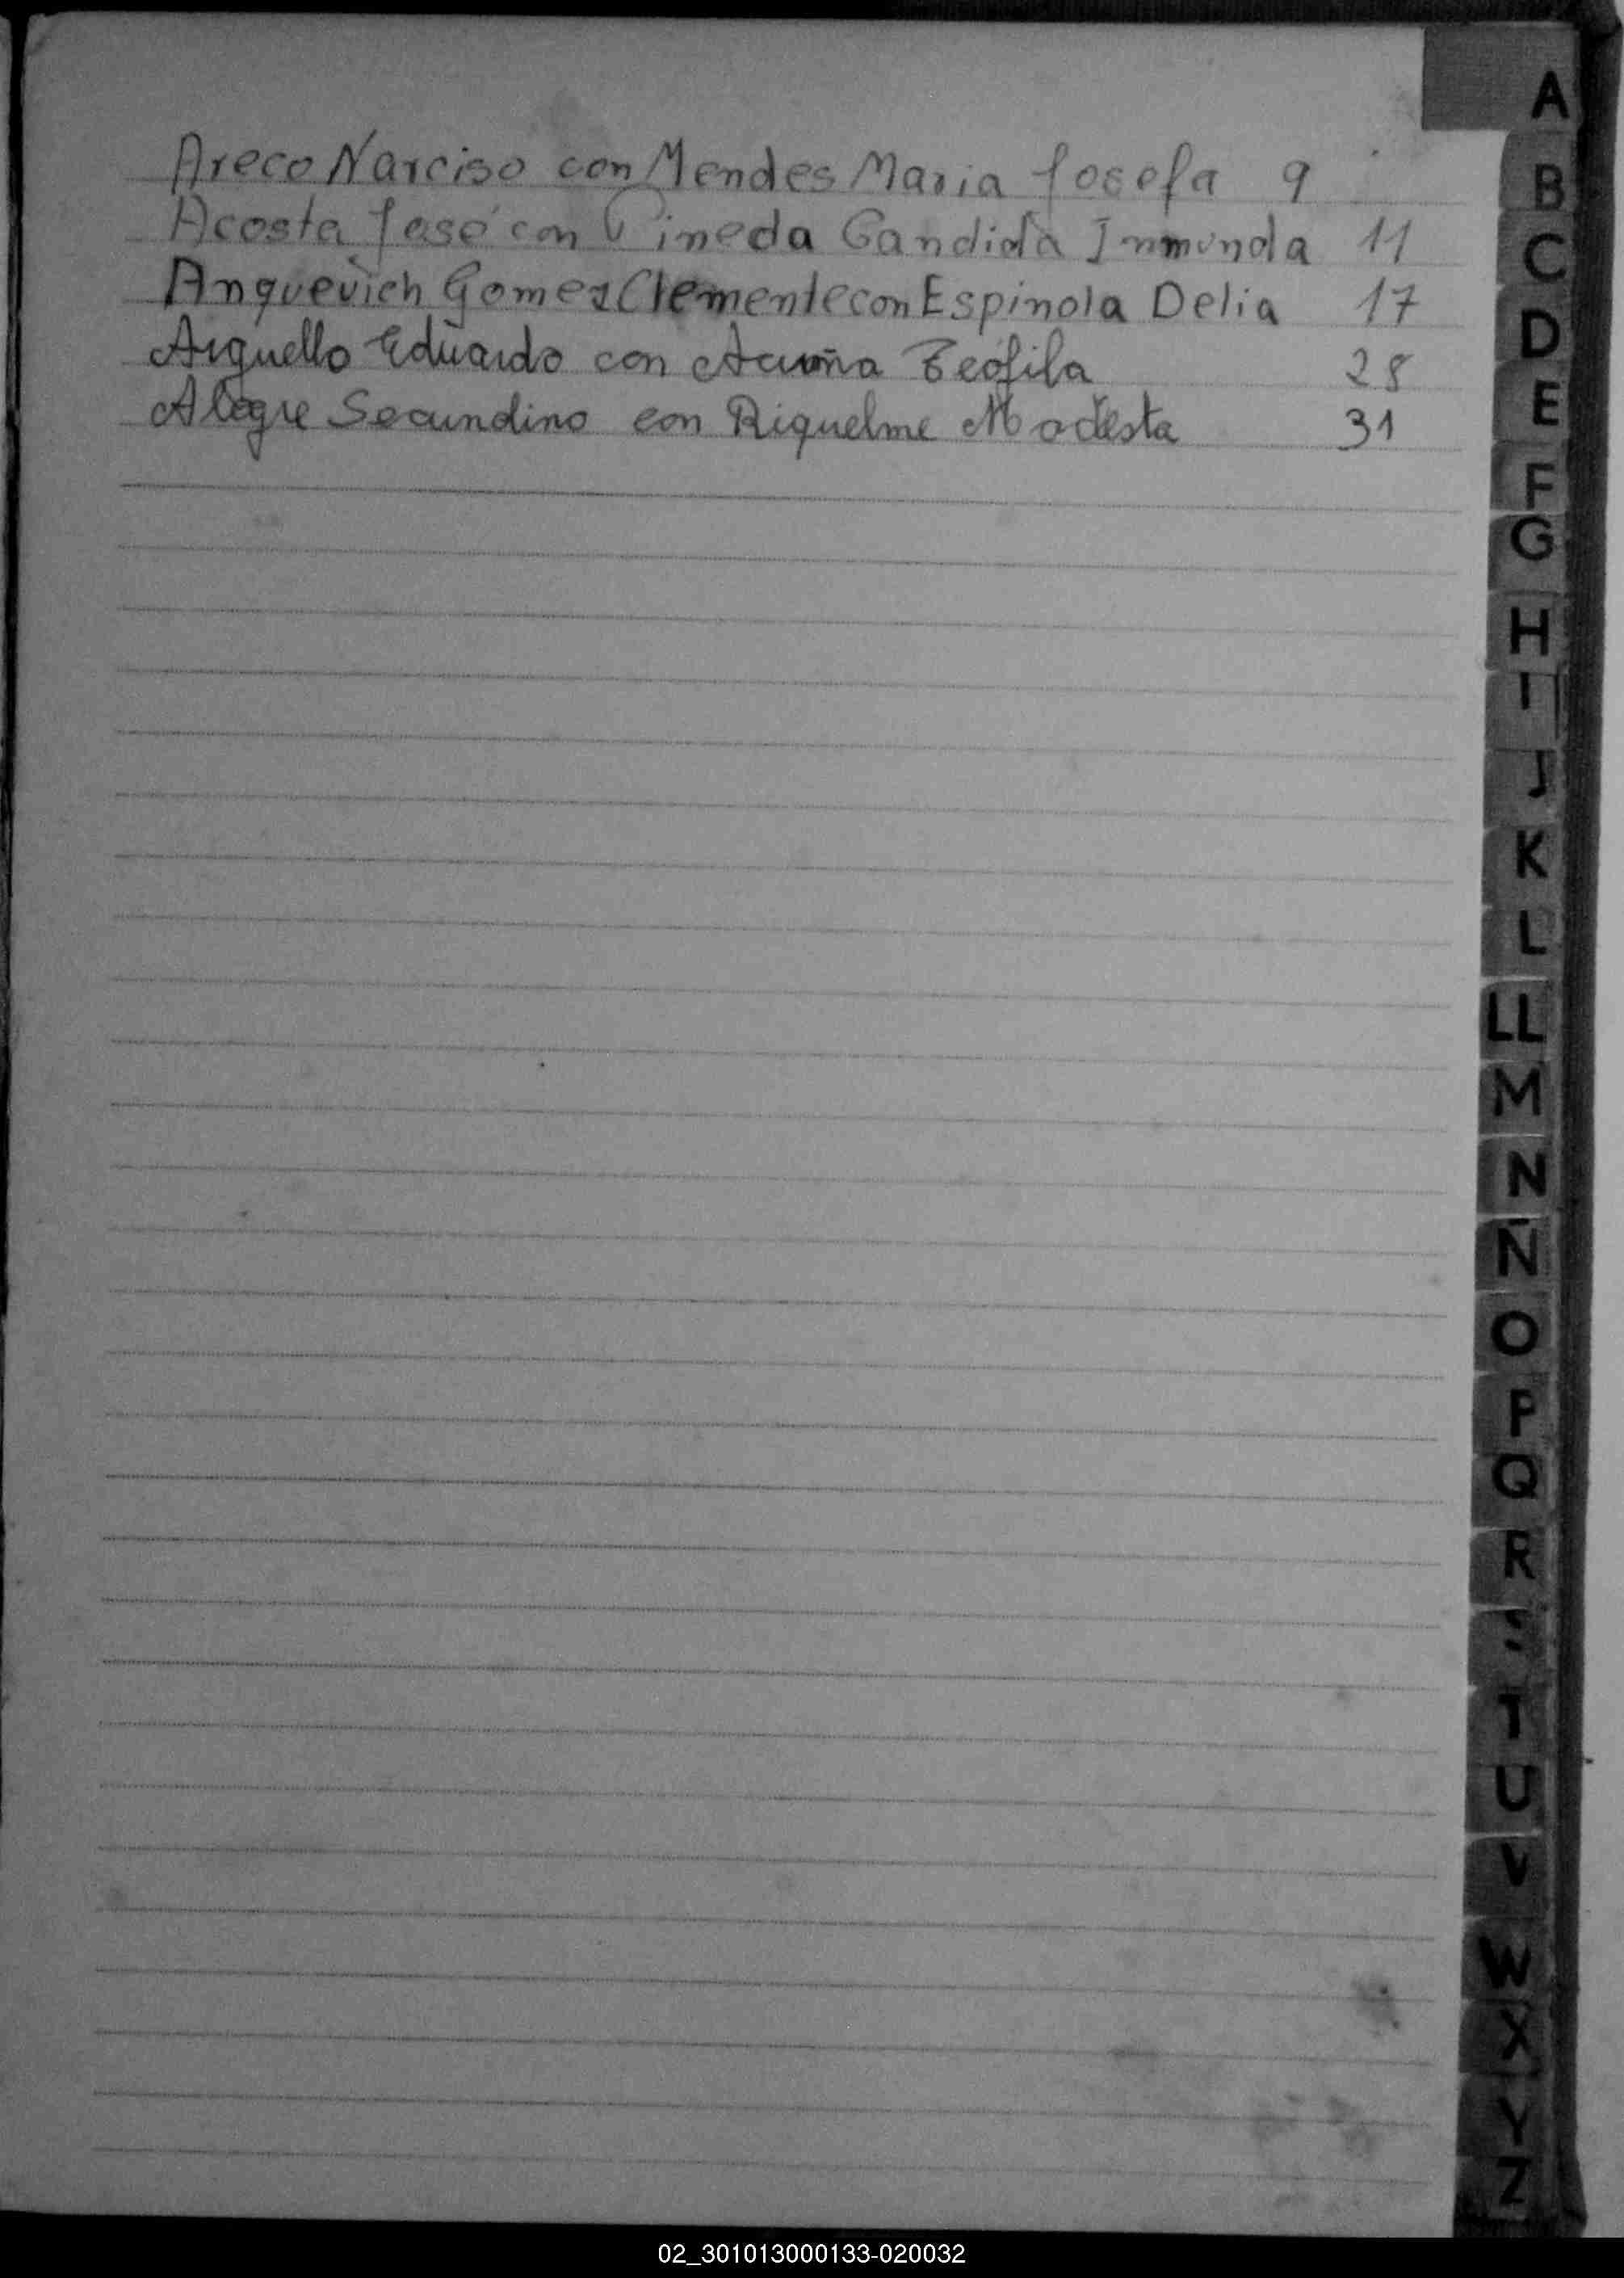 Areco Narciso con Mendes Maria Josefa 9
Acosta José con Pineda Candida Inmunda 11
Anguevich Gomez Clemente con Espinola Delia 17
Arguello Eduardo con Acuña Teófila 28
Alegre Secundino con Riquelme Modesta 31
A
B
C
D
E
F
G
H
I
J
K
L
LL
M
N
Ñ
O
P
Q
R
S
T
U
V
W
X
Y
Z
02_301013000133-020032